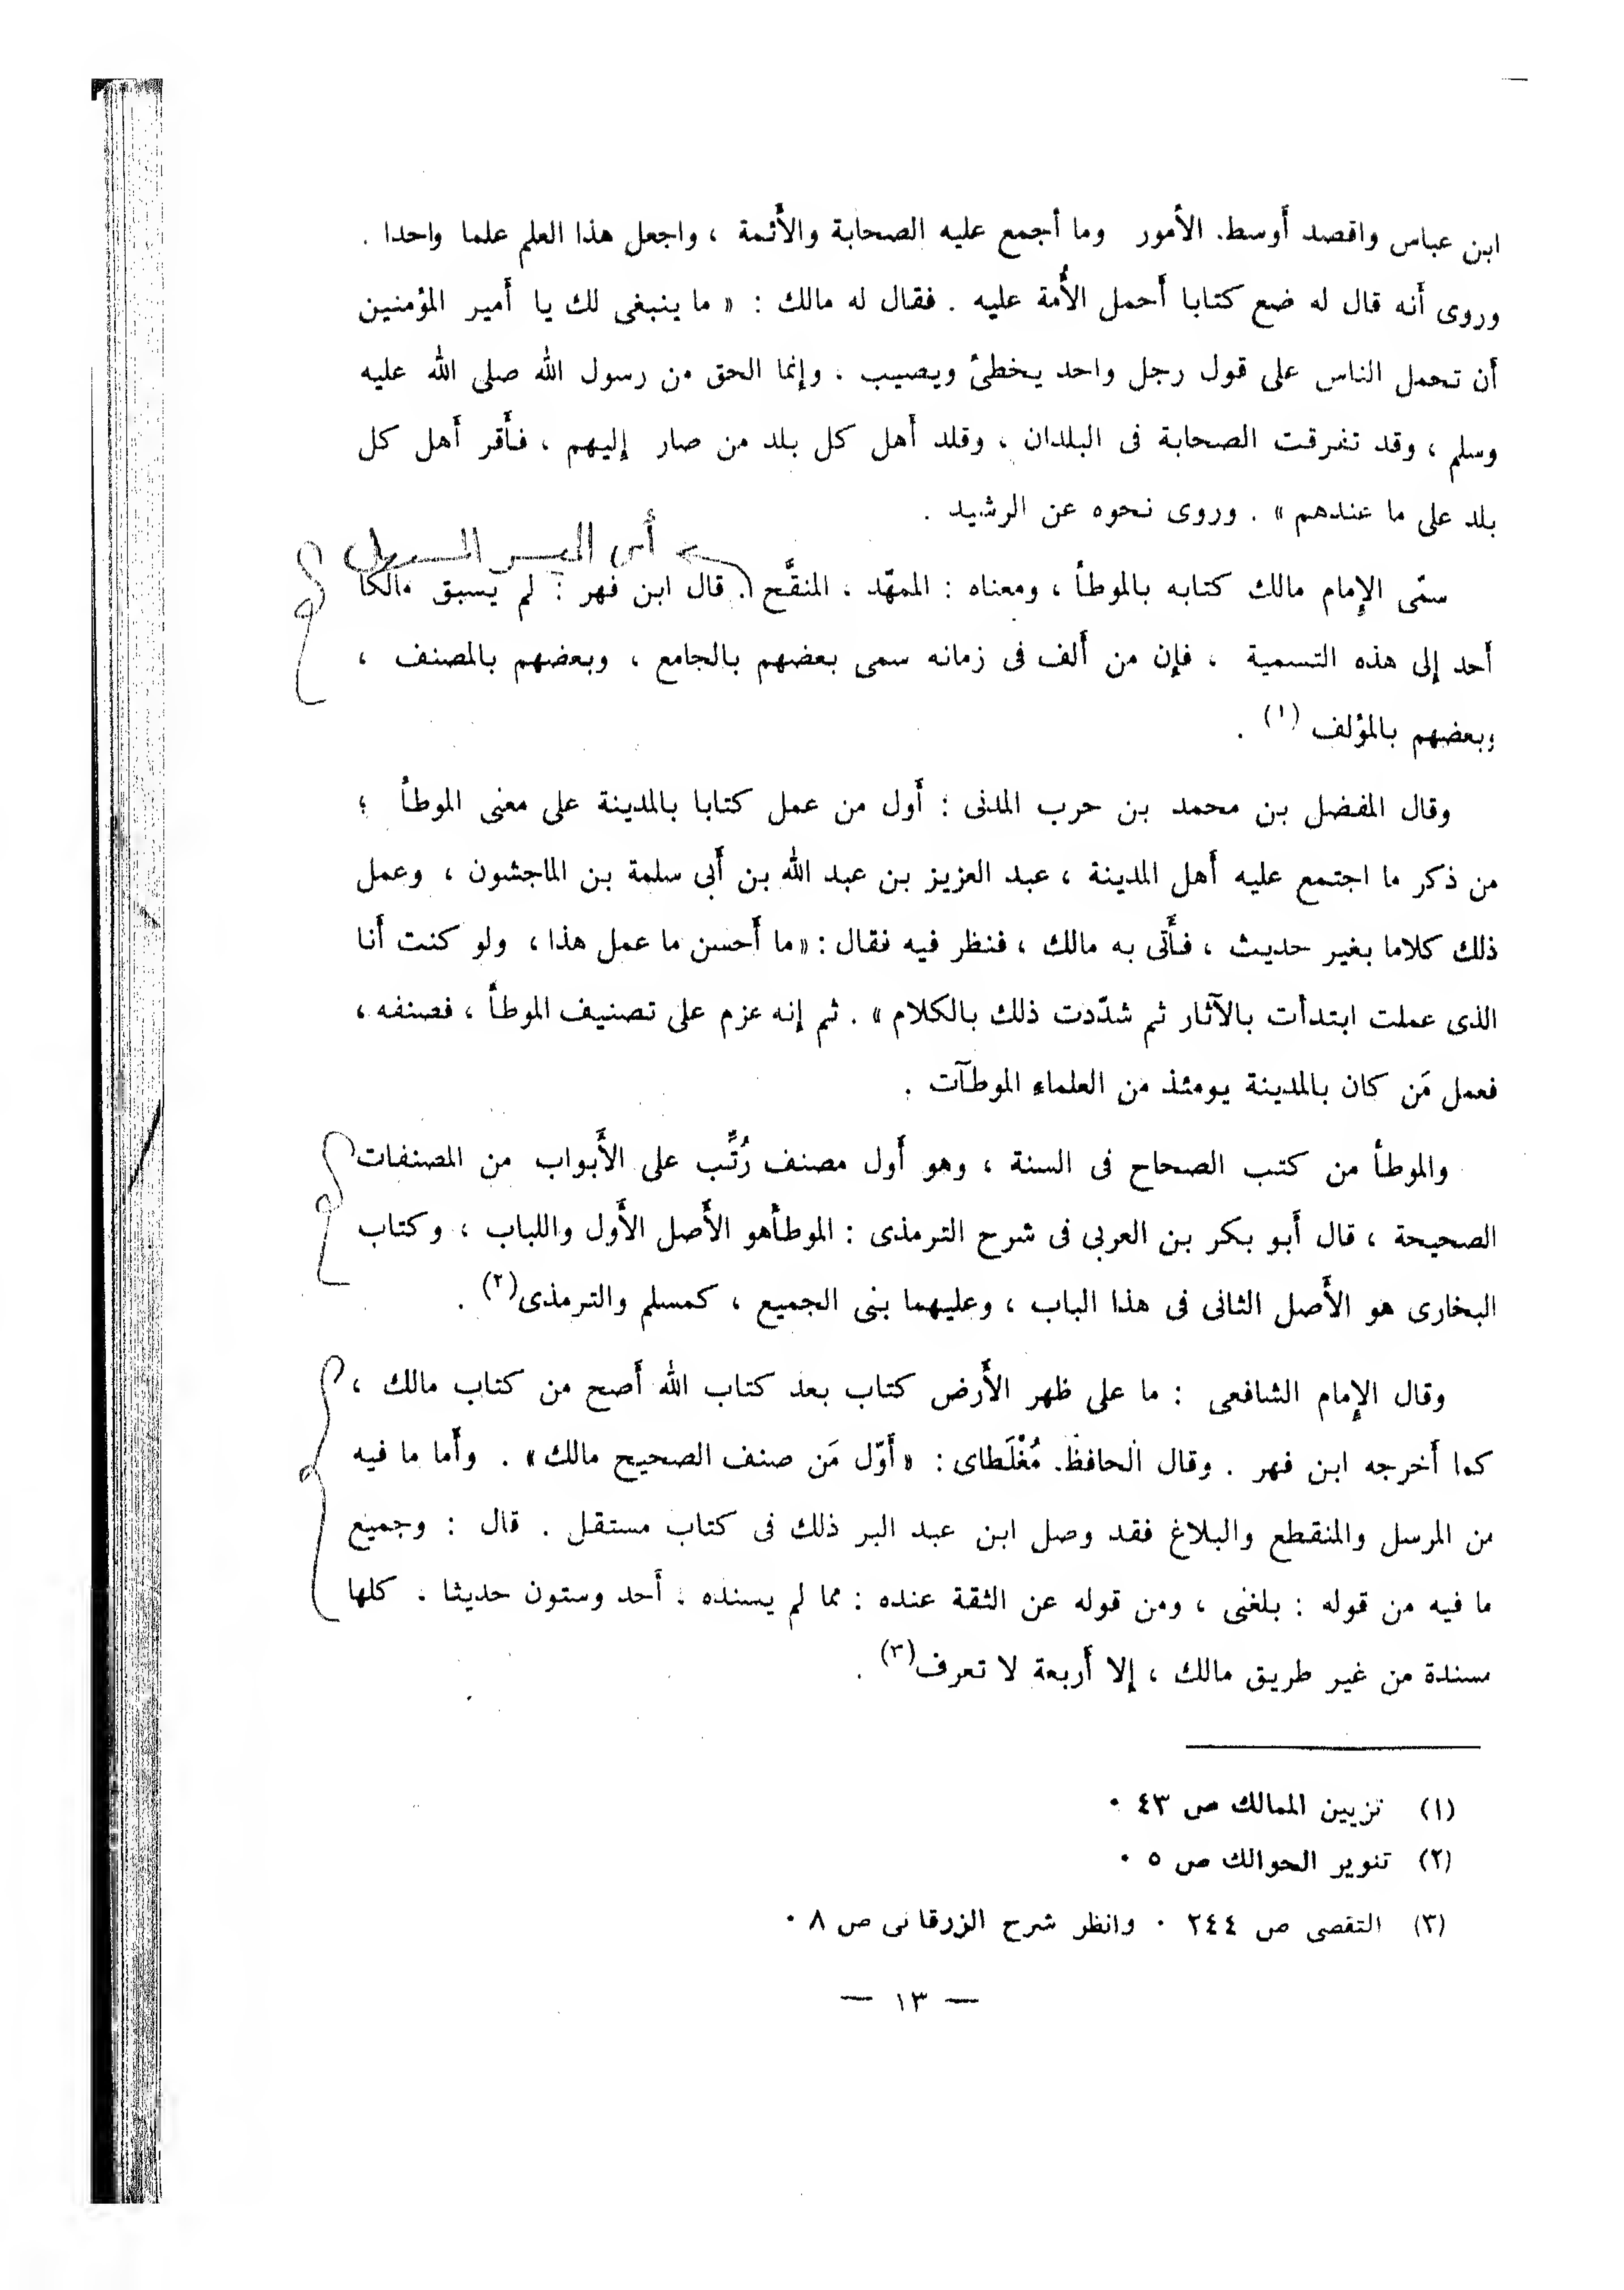 ابن عباس واقصد أوسط. الأمور وما أجمع عليه الصحابة والأئمة ، واجعل هذا العلم علما واحدا .
وروى أنه قال له ضع كتابا أحمل الأُمة عليه . فقال له مالك : « ما ينبغى لك يا أمير المؤمنين
أن تحمل الناس على قول رجل واحد يخطئ ويصيب . وإنما الحق من رسول الله صلى الله عليه
وسلم ، وقد تفرقت الصحابة فى البلدان ، وقلد أهل كل بلد من صار إليهم ، فأقر أهل كل
بلد على ما عندهم » . وروى نحوه عن الرشيد .
أى اليسر السهل
سمّى الإمام مالك كتابه بالموطأ ، ومعناه : الممهّد ، المنقَّح . قال ابن فهر : لم يسبق مالكا
أحد إلى هذه التسمية ، فإن من ألف فى زمانه سمى بعضهم بالجامع ، وبعضهم بالمصنف ،
وبعضهم بالمؤلف (١) .
وقال المفضل بن محمد بن حرب المدنى : أول من عمل كتابا بالمدينة على معنى الموطأ ؛
من ذكر ما اجتمع عليه أهل المدينة ، عبد العزيز بن عبد الله بن أبى سلمة بن الماجشون ، وعمل
ذلك كلاما بغير حديث ، فأتى به مالك ، فنظر فيه فقال : «ما أحسن ما عمل هذا ، ولو كنت أنا
الذى عملت ابتدأت بالآثار ثم شدّدت ذلك بالكلام » . ثم إنه عزم على تصنيف الموطأ ، فصنفه ،
فعمل مَن كان بالمدينة يومئذ من العلماء الموطآت .
والموطأ من كتب الصحاح فى السنة ، وهو أول مصنف رُتِّب على الأَبواب من المصنفات
الصحيحة ، قال أبو بكر بن العربى فى شرح الترمذى : الموطأهو الأَصل الأَول واللباب ، وكتاب
البخارى هو الأَصل الثانى فى هذا الباب ، وعليهما بنى الجميع ، كمسلم والترمذى(٢) .
وقال الإمام الشافعى : ما على ظهر الأَرض كتاب بعد كتاب الله أصح من كتاب مالك ،
كما أخرجه ابن فهر . وقال الحافظ. مُغْلَطاى : «أوّل مَن صنف الصحيح مالك» . وأما ما فيه
من المرسل والمنقطع والبلاغ فقد وصل ابن عبد البر ذلك فى كتاب مستقل . قال : وجميع
ما فيه من قوله : بلغنى ، ومن قوله عن الثقة عنده : مما لم يسنده : أحد وستون حديثا . كلها
مسندة من غير طريق مالك ، إلا أربعة لا تعرف(٣) .
(١) تزيين الممالك ص ٤٣ •
(٢) تنوير الحوالك ص ٥ •
(٣) التقصى ص ٢٤٤ • وانظر شرح الزرقانى ص ٨ •
— ١٣ —